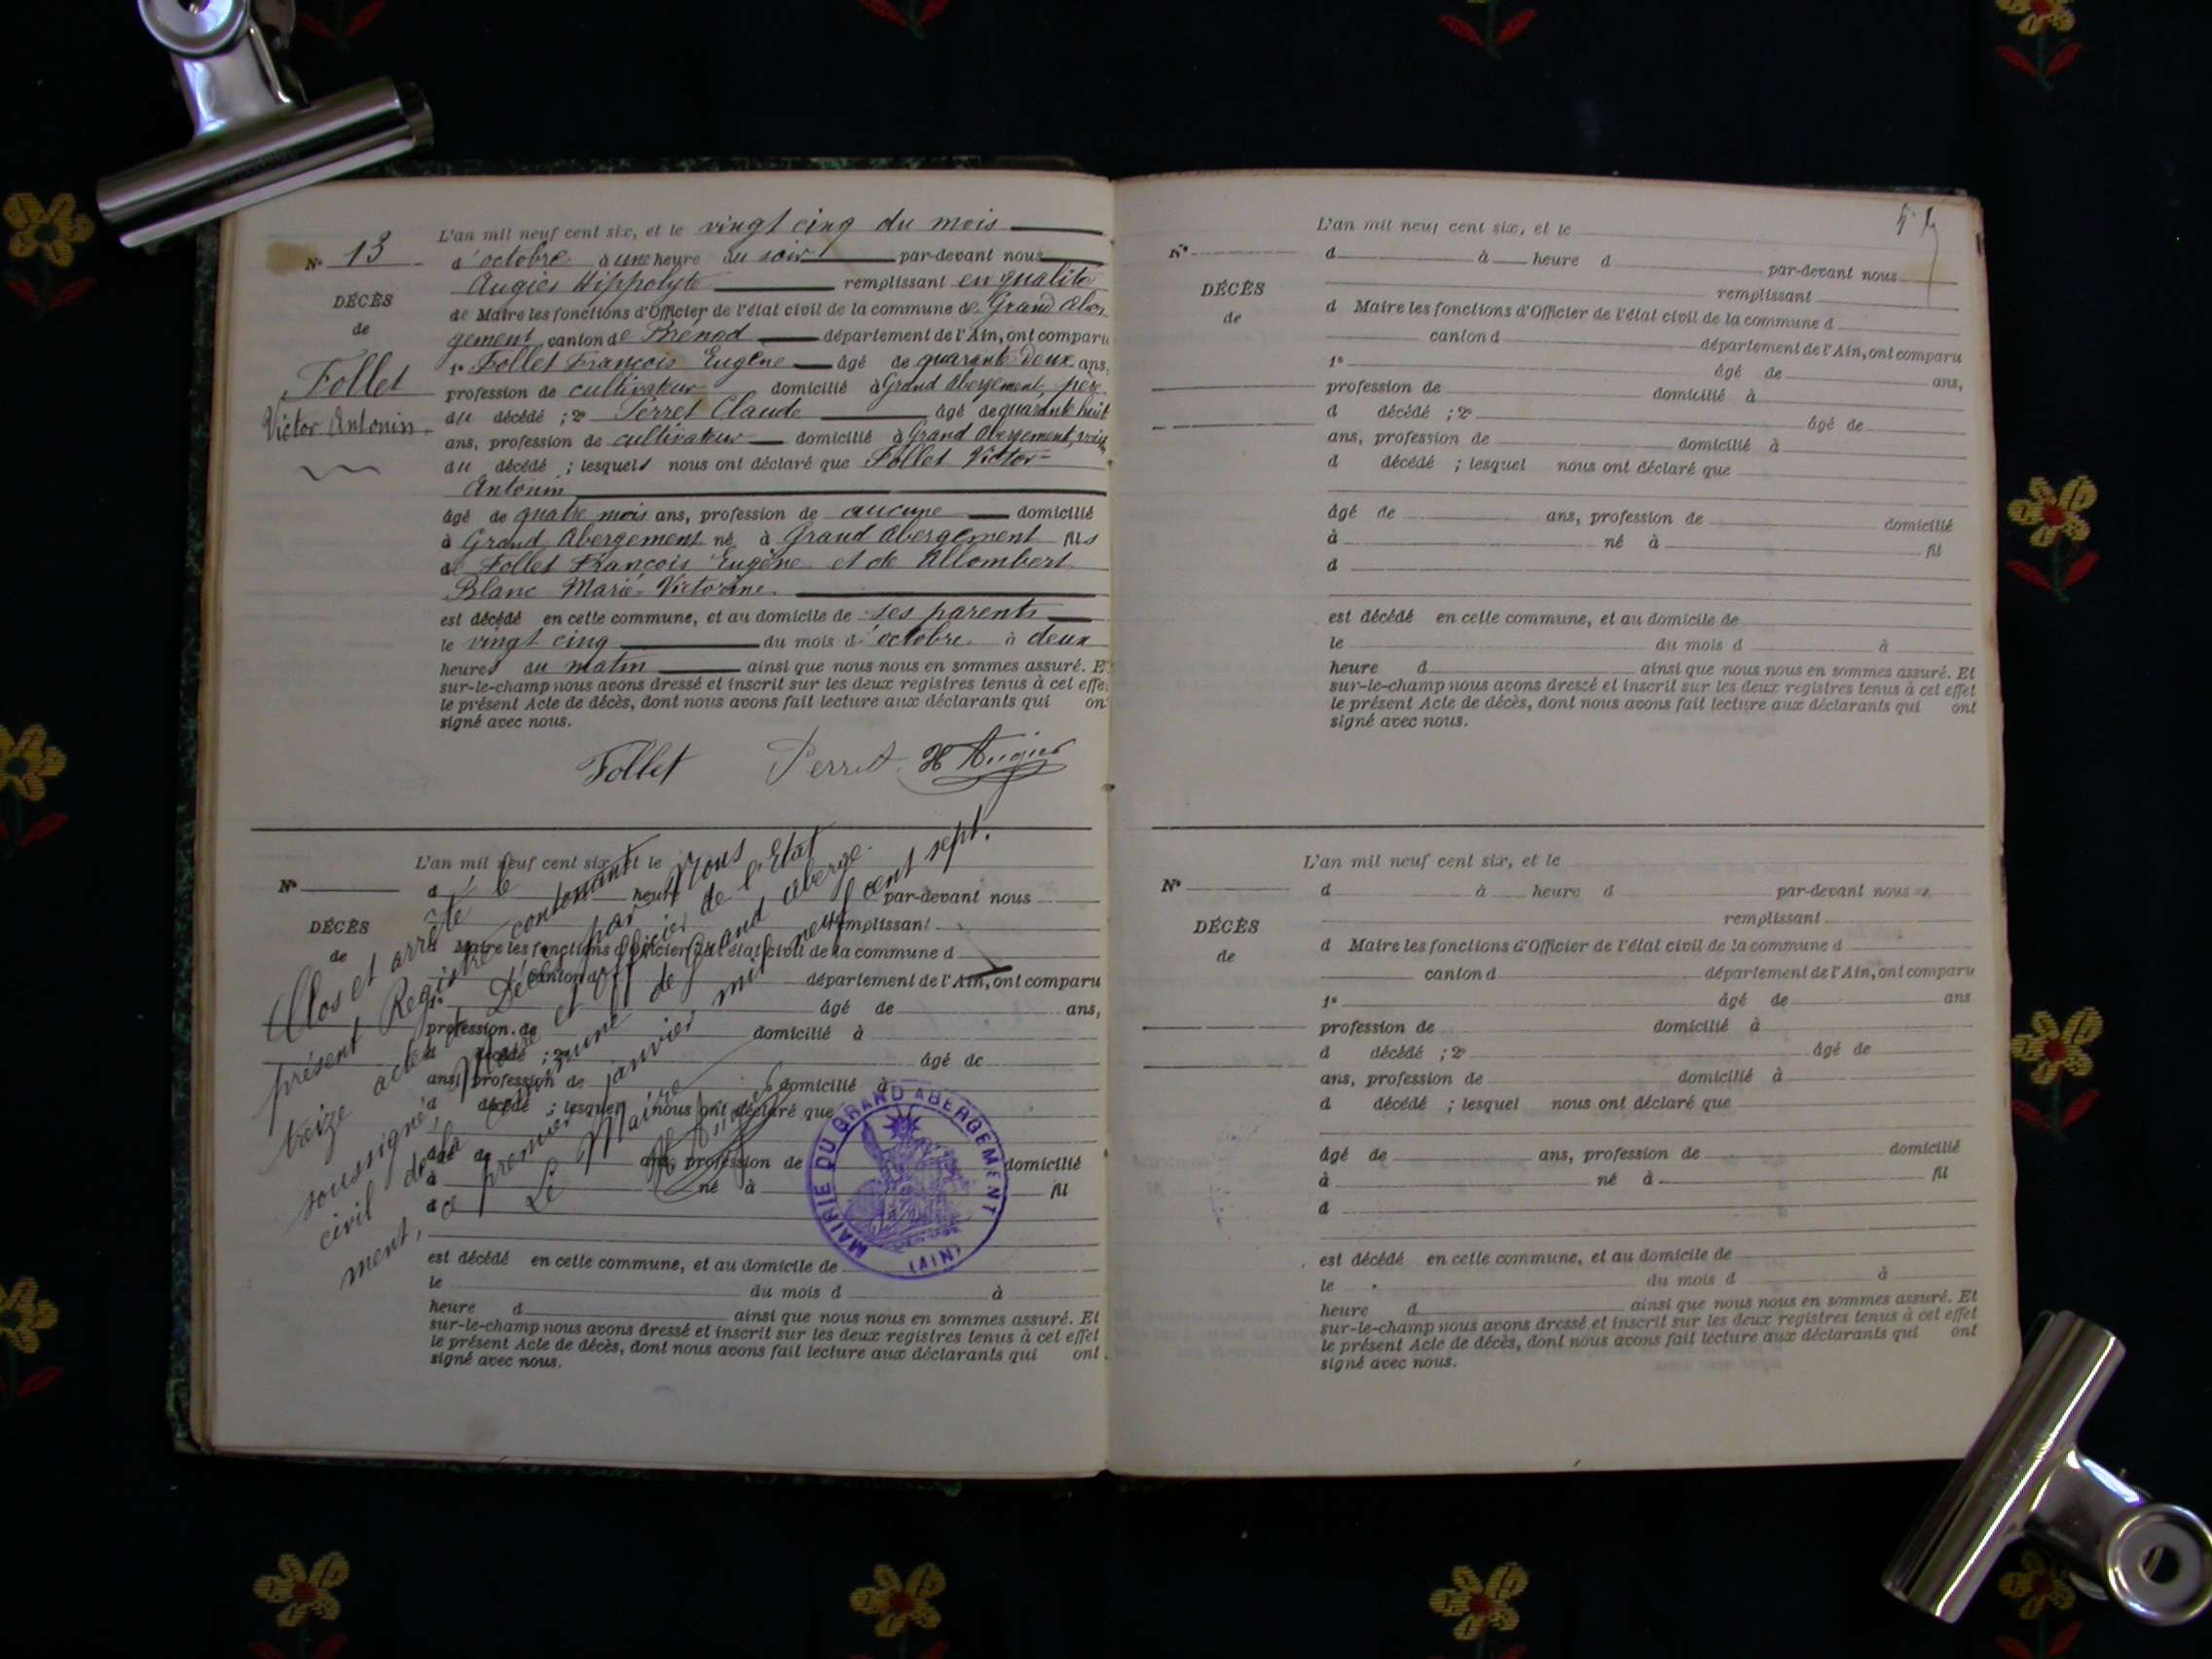 N° 13
DÉCÈS
de
Follet
Victor Antonin
L'an mil neuf cent six, et le vingt cinq du mois
d'octobre à une heure du soir par-devant nous
Augier Hippolyte remplissant en qualité
de Maire les fonctions d'Officier de l'état civil de la commune de Grand Aber
gement canton de Brénod département de l'Ain, ont comparu
1° Follet François Eugène âgé de quarante deux ans,
profession de cultivateur domicilié à Grand Abergement, père
du décédé ; 2° Perret Claude âgé de quarante huit
ans, profession de cultivateur domicilié à Grand Abergement,
du décédé ; lesquels nous ont déclaré que Follet Victor
Antonin
âgé de quatre mois ans, profession de aucune domicilié
à Grand Abergement né à Grand Abergement fils
de Follet François Eugène et de Allombert
Blanc Marie Victorine
est décédé en cette commune, et au domicile de ses parents
le vingt cinq du mois d'octobre à deux
heures du matin ainsi que nous nous en sommes assuré. E
sur-le-champ nous avons dressé et inscrit sur les deux registres tenus à cet effe
le présent Acte de décès, dont nous avons fait lecture aux déclarants qui on
signé avec nous.
Follet Perret H Augier
N°
DÉCÈS
de
L'an mil neuf cent six, et le
d heure par-devant nous
remplissant
d Maire les fonctions d'Officier de l'état civil de la commune d
canton d département de l'Ain, ont comparu
1° âgé de ans,
profession de domicilié à
d décédé ; 2° âgé de
ans, profession de domicilié à
d décédé ; lesquel nous ont déclaré que
âgé de ans, profession de domicilié
à né à fil
d
est décédé en cette commune, et au domicile de
le du mois d à
heure d ainsi que nous nous en sommes assuré. Et
sur-le-champ nous avons dressé et inscrit sur les deux registres tenus à cet effet
le présent Acte de décès, dont nous avons fait lecture aux déclarants qui ont
signé avec nous.
Clos et arrêté le
présent Registre contenant
treize actes de Décès par Nous
soussigné, Maire et officier de l'Etat
civil de la commune de Grand Aberge-
ment, ce premier janvier mil neuf cent sept.
Le Maire
H Augier
MAIRIE DU GRAND ABERGEMENT
(AIN)
N°
DÉCÈS
de
L'an mil neuf cent six, et le
d à heure d par-devant nous
remplissant
d Maire les fonctions d'Officier de l'état civil de la commune d
canton d département de l'Ain, ont comparu
1° âgé de ans,
profession de domicilié à
d décédé ; 2° âgé de
ans, profession de domicilié à
d décédé ; lesquel nous ont déclaré que
âgé de ans, profession de domicilié
à né à fil
d
est décédé en cette commune, et au domicile de
le du mois d à
heure d ainsi que nous nous en sommes assuré. Et
sur-le-champ nous avons dressé et inscrit sur les deux registres tenus à cet effet
le présent Acte de décès, dont nous avons fait lecture aux déclarants qui ont
signé avec nous.
N°
DÉCÈS
de
L'an mil neuf cent six, et le
d à heure d par-devant nous
remplissant
d Maire les fonctions d'Officier de l'état civil de la commune d
canton d département de l'Ain, ont comparu
1° âgé de ans
profession de domicilié à
d décédé ; 2° âgé de
ans, profession de domicilié à
d décédé ; lesquel nous ont déclaré que
âgé de ans, profession de domicilié
à né à fil
d
est décédé en cette commune, et au domicile de
le du mois d à
heure d ainsi que nous nous en sommes assuré. Et
sur-le-champ nous avons dressé et inscrit sur les deux registres tenus à cet effet
le présent Acte de décès, dont nous avons fait lecture aux déclarants qui ont
signé avec nous.